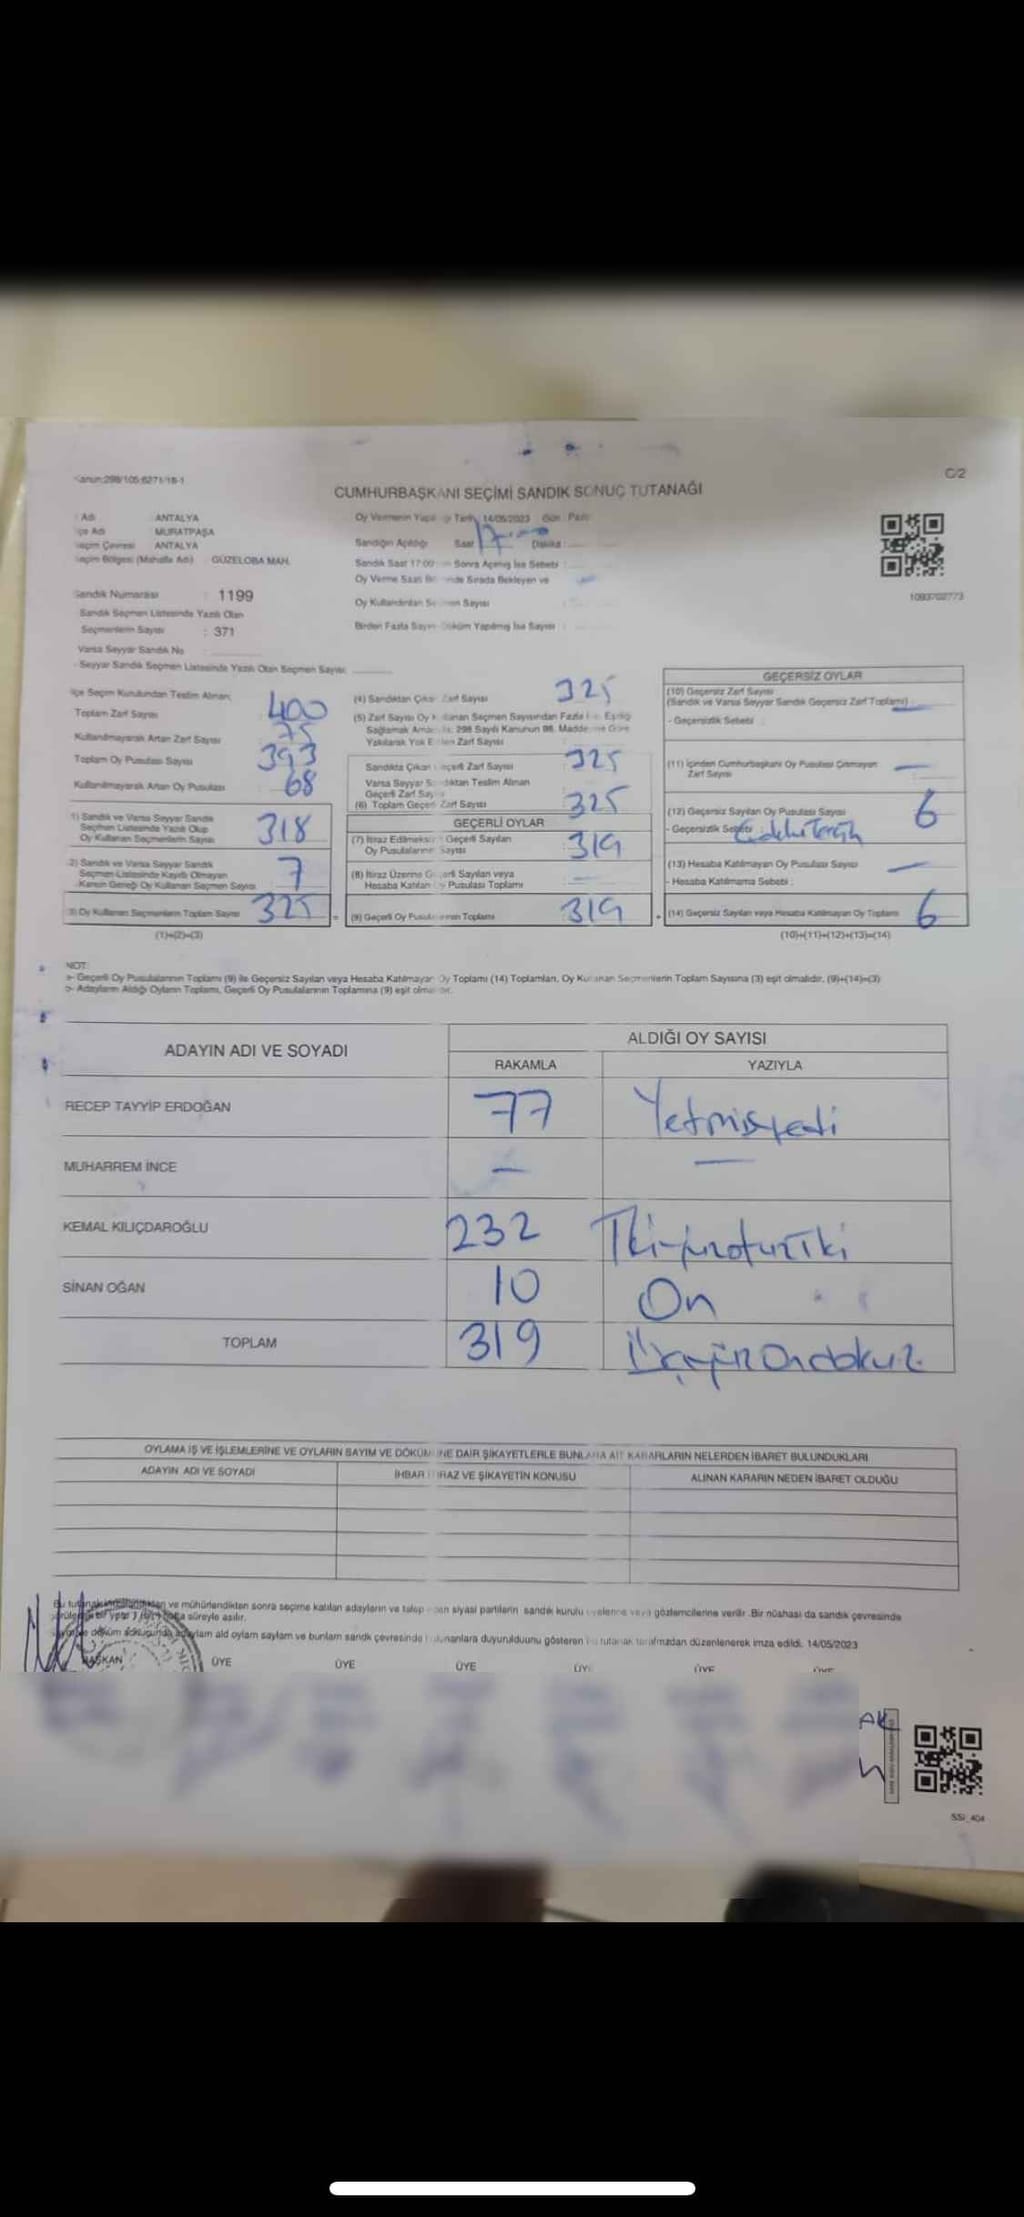 Kanun:298/105:6271/18-1
C/2
CUMHURBAŞKANI SEÇİMİ SANDIK SONUÇ TUTANAĞI
Adı : ANTALYA
İlçe Adı : MURATPAŞA
Seçim Çevresi : ANTALYA
Seçim Bölgesi (Mahalle Adı) : GÜZELOBA MAH.
Sandık Numarası : 1199
Sandık Seçmen Listesinde Yazılı Olan
Seçmenlerin Sayısı : 371
Varsa Seyyar Sandık No
- Seyyar Sandık Seçmen Listesinde Yazılı Olan Seçmen Sayısı:
Oy Vermenin Tarihi 14/05/2023 Gün : Pazar
Sandığın Açıldığı Saat 17 Dakika :
Sandık Saat 17:00 Sonra Açılmış İse Sebebi :
Oy Verme Saati Sırada Bekleyen ve
Oy Kullandırılan Seçmen Sayısı
Birden Fazla Sayım Döküm Yapılmış İse Sayısı :
1093702773
İlçe Seçim Kurulundan Teslim Alınan;
Toplam Zarf Sayısı : 400
Kullanılmayarak Artan Zarf Sayısı 75
Toplam Oy Pusulası Sayısı 393
Kullanılmayarak Artan Oy Pusulası 68
1) Sandık ve Varsa Seyyar Sandık
Seçmen Listesinde Yazılı Olup
Oy Kullanan Seçmenlerin Sayısı 318
2) Sandık ve Varsa Seyyar Sandık
Seçmen Listesinde Kayıtlı Olmayan
Kanun Gereği Oy Kullanan Seçmen Sayısı 7
3) Oy Kullanan Seçmenlerin Toplam Sayısı 325
(1)+(2)=(3)
(4) Sandıktan Çıkan Zarf Sayısı 325
(5) Zarf Sayısı Oy Kullanan Seçmen Sayısından Fazla Eşitliği
Sağlamak 298 Sayılı Kanunun 98. Maddesine Göre
Yakılarak Yok Edilen Zarf Sayısı
Sandıkta Çıkan Geçerli Zarf Sayısı 325
Varsa Seyyar Sandıktan Teslim Alınan
Geçerli Zarf Sayısı
(6) Toplam Geçerli Zarf Sayısı 325
GEÇERLİ OYLAR
(7) İtiraz Edilmeksizin Geçerli Sayılan
Oy Pusulalarının Sayısı 319
(8) İtiraz Üzerine Geçerli Sayılan veya
Hesaba Katılan Oy Pusulası Toplamı —
(9) Geçerli Oy Pusulalarının Toplamı 319
GEÇERSİZ OYLAR
(10) Geçersiz Zarf Sayısı
(Sandık ve Varsa Seyyar Sandık Geçersiz Zarf Toplamı) —
- Geçersizlik Sebebi :
(11) İçinden Cumhurbaşkanı Oy Pusulası Çıkmayan
Zarf Sayısı —
(12) Geçersiz Sayılan Oy Pusulası Sayısı 6
- Geçersizlik Sebebi :
(13) Hesaba Katılmayan Oy Pusulası Sayısı —
- Hesaba Katılmama Sebebi :
(14) Geçersiz Sayılan veya Hesaba Katılmayan Oy Toplamı 6
(10)+(11)+(12)+(13)=(14)
NOT:
>- Geçerli Oy Pusulalarının Toplamı (9) ile Geçersiz Sayılan veya Hesaba Katılmayan Oy Toplamı (14) Toplamları, Oy Kullanan Seçmenlerin Toplam Sayısına (3) eşit olmalıdır. (9)+(14)=(3)
>- Adayların Aldığı Oyların Toplamı, Geçerli Oy Pusulalarının Toplamına (9) eşit olmalıdır.
ADAYIN ADI VE SOYADI ALDIĞI OY SAYISI
RAKAMLA YAZIYLA
RECEP TAYYİP ERDOĞAN 77 Yetmişyedi
MUHARREM İNCE — —
KEMAL KILIÇDAROĞLU 232 İkiyüzotuziki
SİNAN OĞAN 10 On
TOPLAM 319 Üçyüz Ondokuz
OYLAMA İŞ VE İŞLEMLERİNE VE OYLARIN SAYIM VE DÖKÜMÜNE DAİR ŞİKAYETLERLE BUNLARA AİT KARARLARIN NELERDEN İBARET BULUNDUKLARI
ADAYIN ADI VE SOYADI İHBAR İTİRAZ VE ŞİKAYETİN KONUSU ALINAN KARARIN NEDEN İBARET OLDUĞU
Bu tutanak ve mühürlendikten sonra seçime katılan adayların ve talep eden siyasi partilerin sandık kurulu üyelerine veya gözlemcilerine verilir .Bir nüshası da sandık çevresinde
süreyle asılır.
ald oylam saylam ve bunlam sandk çevresinde bulunanlara duyurulduunu gösteren bu tutanak tarafmzdan düzenlenerek imza edildi. 14/05/2023
BAŞKAN ÜYE ÜYE ÜYE ÜYE ÜYE ÜYE
SSİ_404